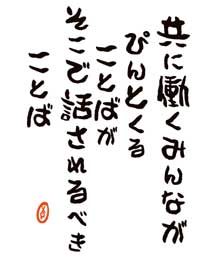 共に働くみんなが
ぴんとくる
ことばが
そこで話されるべき
ことば